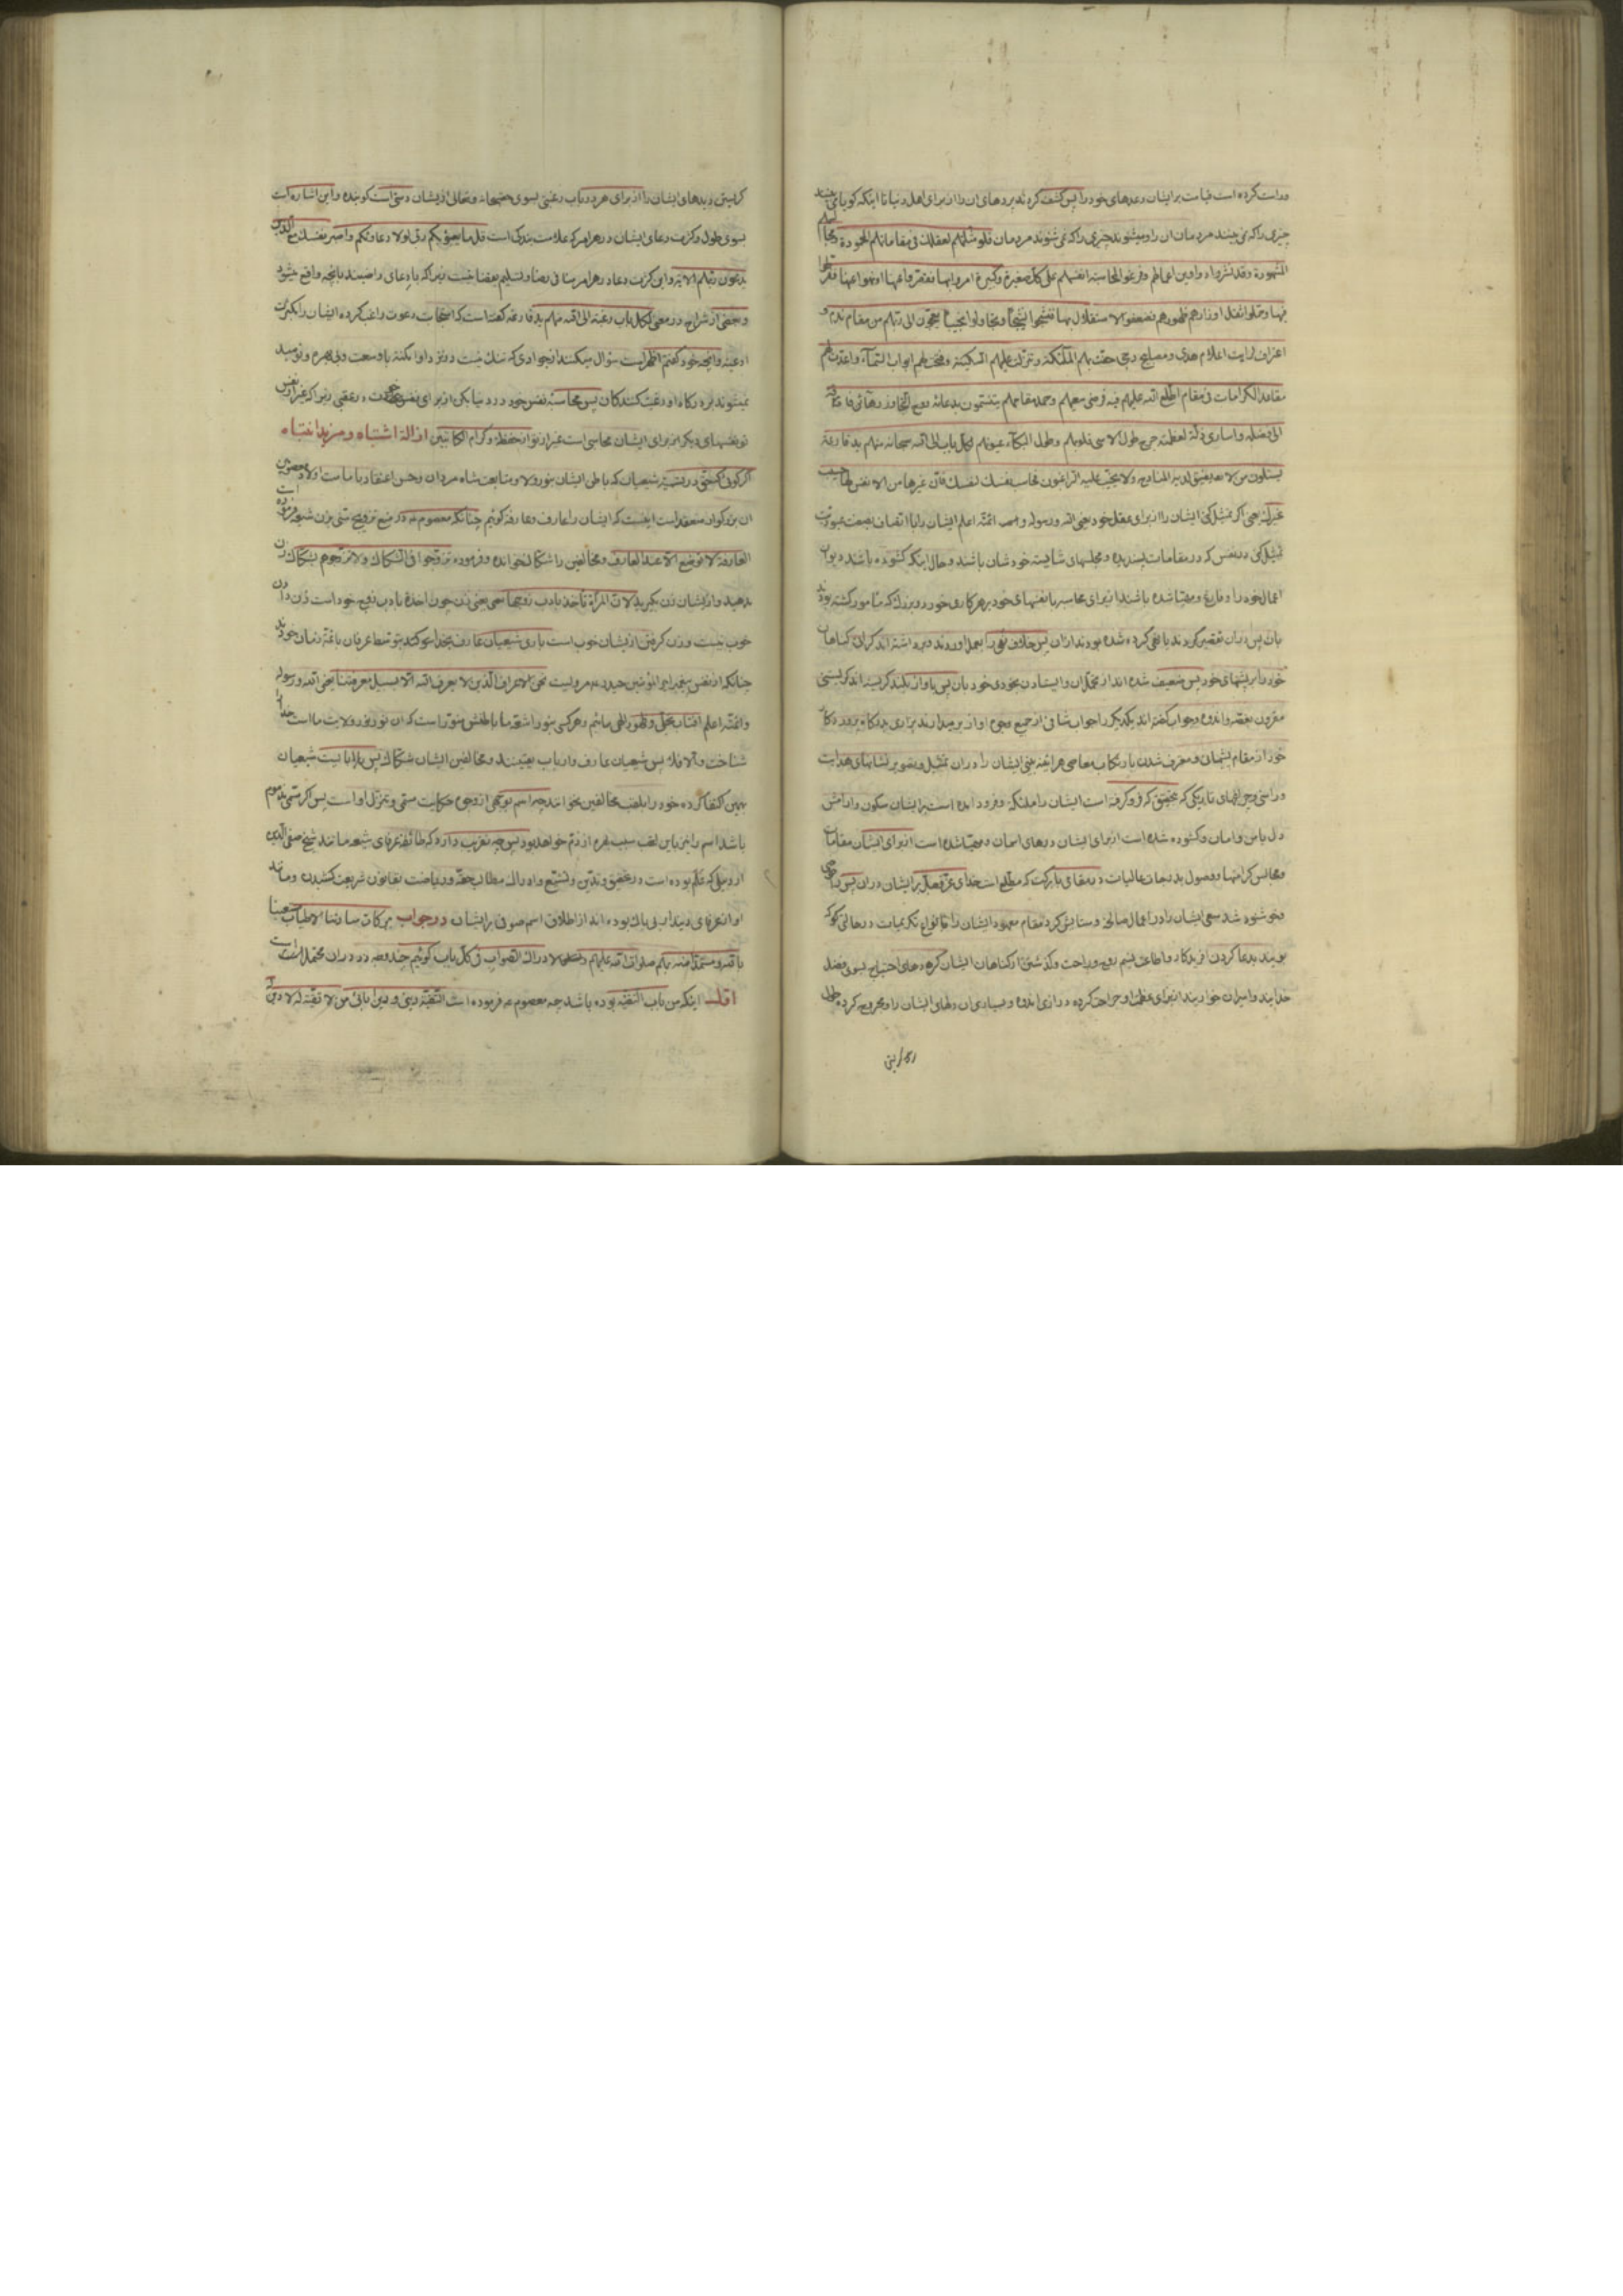 وراست کرده است قیامت بر ایشان وعدهای خود را پس کشف کردند پردهای ان را از برای اهل دنیا تا اینکه کویا می بینند
چیزی را که نمی بینند مردمان ان را و میشنوند چیزی را که نمی شنوند مردمان فلو مثلتهم لعقلک فی مقاماتهم المحمودة ومجالسهم
المشهودة وقد نشروا دواوین اعمالهم وفرغوا لمحاسبة انفسهم علی کل صغیرة وکبیرة امروا بها فقصروا عنها او نهوا عنها ففرطوا
فیها وحملوا ثقل اوزارهم ظهورهم فضعفوا عن الاستقلال بها فنشجوا نشیجا وتجاوبوا نحیبا یعجون الی ربهم من مقام ندم و
اعتراف لرایت اعلام هدی ومصابیح دجی حفت بهم الملئکة وتنزلت علیهم السکینة وفتحت لهم ابواب السماء واعدت لهم
مقاعد الکرامات فی مقام اطلع الله علیهم فیه فرضی سعیهم وحمد مقامهم یتنسمون بدعائه روح التجاوز رهائن فاقة
الی فضله واساری ذلة لعظمته جرح طول الاسی قلوبهم وطول البکاء عیونهم لکل باب الی الله سبحانه منهم ید قارعة
یسئلون من لا تضیق لدیه المنادح ولا یخیب علیه الراغبون فحاسب نفسک لنفسک فان غیرها من الانفس لها حسیب
غیرک یعنی اگر تمثیل کنی ایشان را از برای عقل خود یعنی الله ورسوله وائمته اعلم ایشان را با اتصاف بصفت عبودیت
تمثیل کنی در نفس که در مقامات پسندیده و مجلسهای شایسته خودشان باشند و حال اینکه کشوده باشند دیوان
اعمال خود را و فارغ و مهیا شده باشند از برای محاسبه با نفسهای خود بر هر کاری خورد و بزرک که مامور کشته بودند
بان پس دران تقصیر کردند یا نهی کرده شده بودند از ان پس خلاف نهی را بعمل اوردند و برداشته اند کرانی کناهان
خود را بر پشتهای خود پس ضعیف شده اند از تحمل ان و ایستادن بخودی خود بان پس باواز بلند کریسته اند کریستنی
مقرون بغصه واندوه وجواب کفته اند یکدیکر را جواب شافی از جمیع وجوه اواز بر میدارند بزاری بدرکاه پروردکار
خود از مقام پشیمان ومعترف شدن بارتکاب معاصی هراینه بینی ایشان را دران تمثیل وتصویر نشانهای هدایت
وراستی وچراغهای تاریکی که بتحقیق که فرو کرفته است ایشان را ملئکه وفرود امده است بر ایشان سکون وارامش
دل باس وامان وکشوده شده است از برای ایشان درهای اسمان ومهیا شده است از برای ایشان مقامات
ومجالس کرامتها و وصول بدرجات عالیات در مقامی بابرکت که مطلع است خدای عز وجل بر ایشان دران پس راضی
وخوشنود شد سعی ایشان را در اعمال صالحه وستایش کرد مقام معهود ایشان را بانواع تکریمات در حالتی که
بویند بدعا کردن افریدکار واطاعتش نسیم روح وراحت وکذشتن از کناهان ایشان کروهای احتیاج بسوی فضل
خدایند واسیران خواریند از برای عظمت او جراحت کرده درازی اندوه وبسیاری ان دلهای ایشان را ومجروح کرده طول
کریستن دیدهای ایشان را از برای هر دریاب رغبتی بسوی حقسبحانه وتعالی از ایشان دستی است کوبنده واین اشاره است
بسوی طول وکثرت دعای ایشان در هر امر که علامت بندکی است قل ما یعبؤ بکم ربی لولا دعاؤکم واصبر نفسک مع الذین
یدعون ربهم الایة واین کثرت دعا در هر امر منافی رضا وتسلیم بقضا نیست زیرا که با دعای راضیند بانچه واقع میشود
وبعضی از شراح در معنی لکل باب رغبة الی الله منهم ید قارعة کفته است که استجابت دعوت راغب کرده ایشان را بکثرت
ادعیه وانچه خود کفتم اظهر است سؤال میکنند از جوادی که تنک نیست در نزد او امکنة با وسعت وبی بهره ونومید
نمیشوند بر درکاه او رغبت کنندکان پس محاسبه نفس خود در دنیا بکن از برای نفس خود در عقبی زیرا که غیر از نفس
تو نفسهای دیکر از برای ایشان محاسبی است غیر از تو از حفظه وکرام الکاتبین ازالة اشتباه ومزید انتباه
اکر کوئی که حق در تسمیه شیعیان که باطن ایشان بنور ولا ومتابعت شاه مردان وحسن اعتقاد بامامت اولاد معصومین
ان بزرکوار منعقد است اینست که ایشان را عارف وعارفه کوئیم چنانکه معصوم ع در منع تزویج سنی بزن شیعه فرموده است
العارفة لا توضع الا عند العارف ومخالفین را شکاک خوانده وفرموده تزوجوا فی الشکاک ولا تزوجوهم بشکاک زن
بدهید واز ایشان زن بکیرید لان المرأة تأخذ بادب زوجها یعنی زن چون اخذ بادب زوج خود است زن دادن
خوب نیست وزن کرفتن از ایشان خوب است باری شیعیان عارف بخدا
چنانکه از نفس پیغمبر امیر المؤمنین حیدر ع مرویست نحن الاعراف الذین لا یعرف الله الا بسبیل معرفتنا یعنی الله ورسوله
وائمته اعلم افتاب تجلی وظهور الهی مائیم وهر کس بنور اشعه ما باطنش منور است که ان نور نور ولایت ما است خدا را
شناخت والا فلا پس شیعیان عارف وارباب یقینند ومخالفین ایشان شکاک پس
بهین اکتفا کرده خود را بلقب مخالفین نخوانند چه اسم بوجهی از وجوه حکایت مسمی ومنزل او است پس اکر مسمی مذموم
باشد اسم را نیز باین لقب سبب بهره از ذم خواهد بود پس چه تقریب دارد که طائفه عرفای شیعه مانند شیخ صفی الدین
اردبیلی که علم بوده است در تحقیق وتدین وتشیع وادراک مطالب حقه وریاضت بقانون شریعت کشیدن ومانند
او از عرفای دیندار بی باک بوده اند از اطلاق اسم صوفی بر ایشان در جواب ببرکات ساداتنا الاطیاب مستعینا
بالله ومستمدا منه بهم صلوات الله علیهم لادراک الصواب فی کل باب کوئیم چند وجه در دوران محتمل است
اول اینکه من باب التقیه بوده باشد چه معصوم ع فرموده است التقیة دینی ودین ابائی من لا تقیة له لا دین له